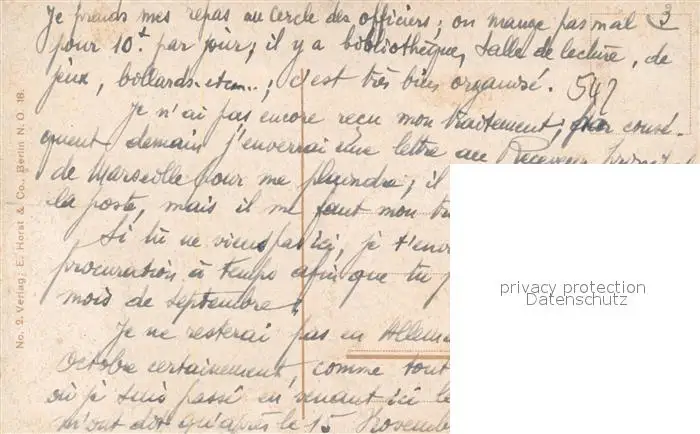 3
Je prends mes repas au cercle des officiers; on mange pas mal
pour 10f par jour; il y a bibliothèque, salle de lecture, de
jeux, billards etc...; c'est très bien organisé.
547
Je n'ai pas encore reçu mon traitement; par consé-
quent demain j'enverrai une lettre au Receveur
de Marseille pour me plaindre; il
la poste, mais il me faut mon
Si tu ne viens pas ici, je
procuration à temps afin que tu
mois de septembre!
Je ne resterai pas en
octobre certainement, comme tout
où je suis passé en venant ici
m'ont dit qu'après le 15 Novemb
No. 2. Verlag: E. Horst & Co., Berlin N. O. 18.
privacy protection
Datenschutz